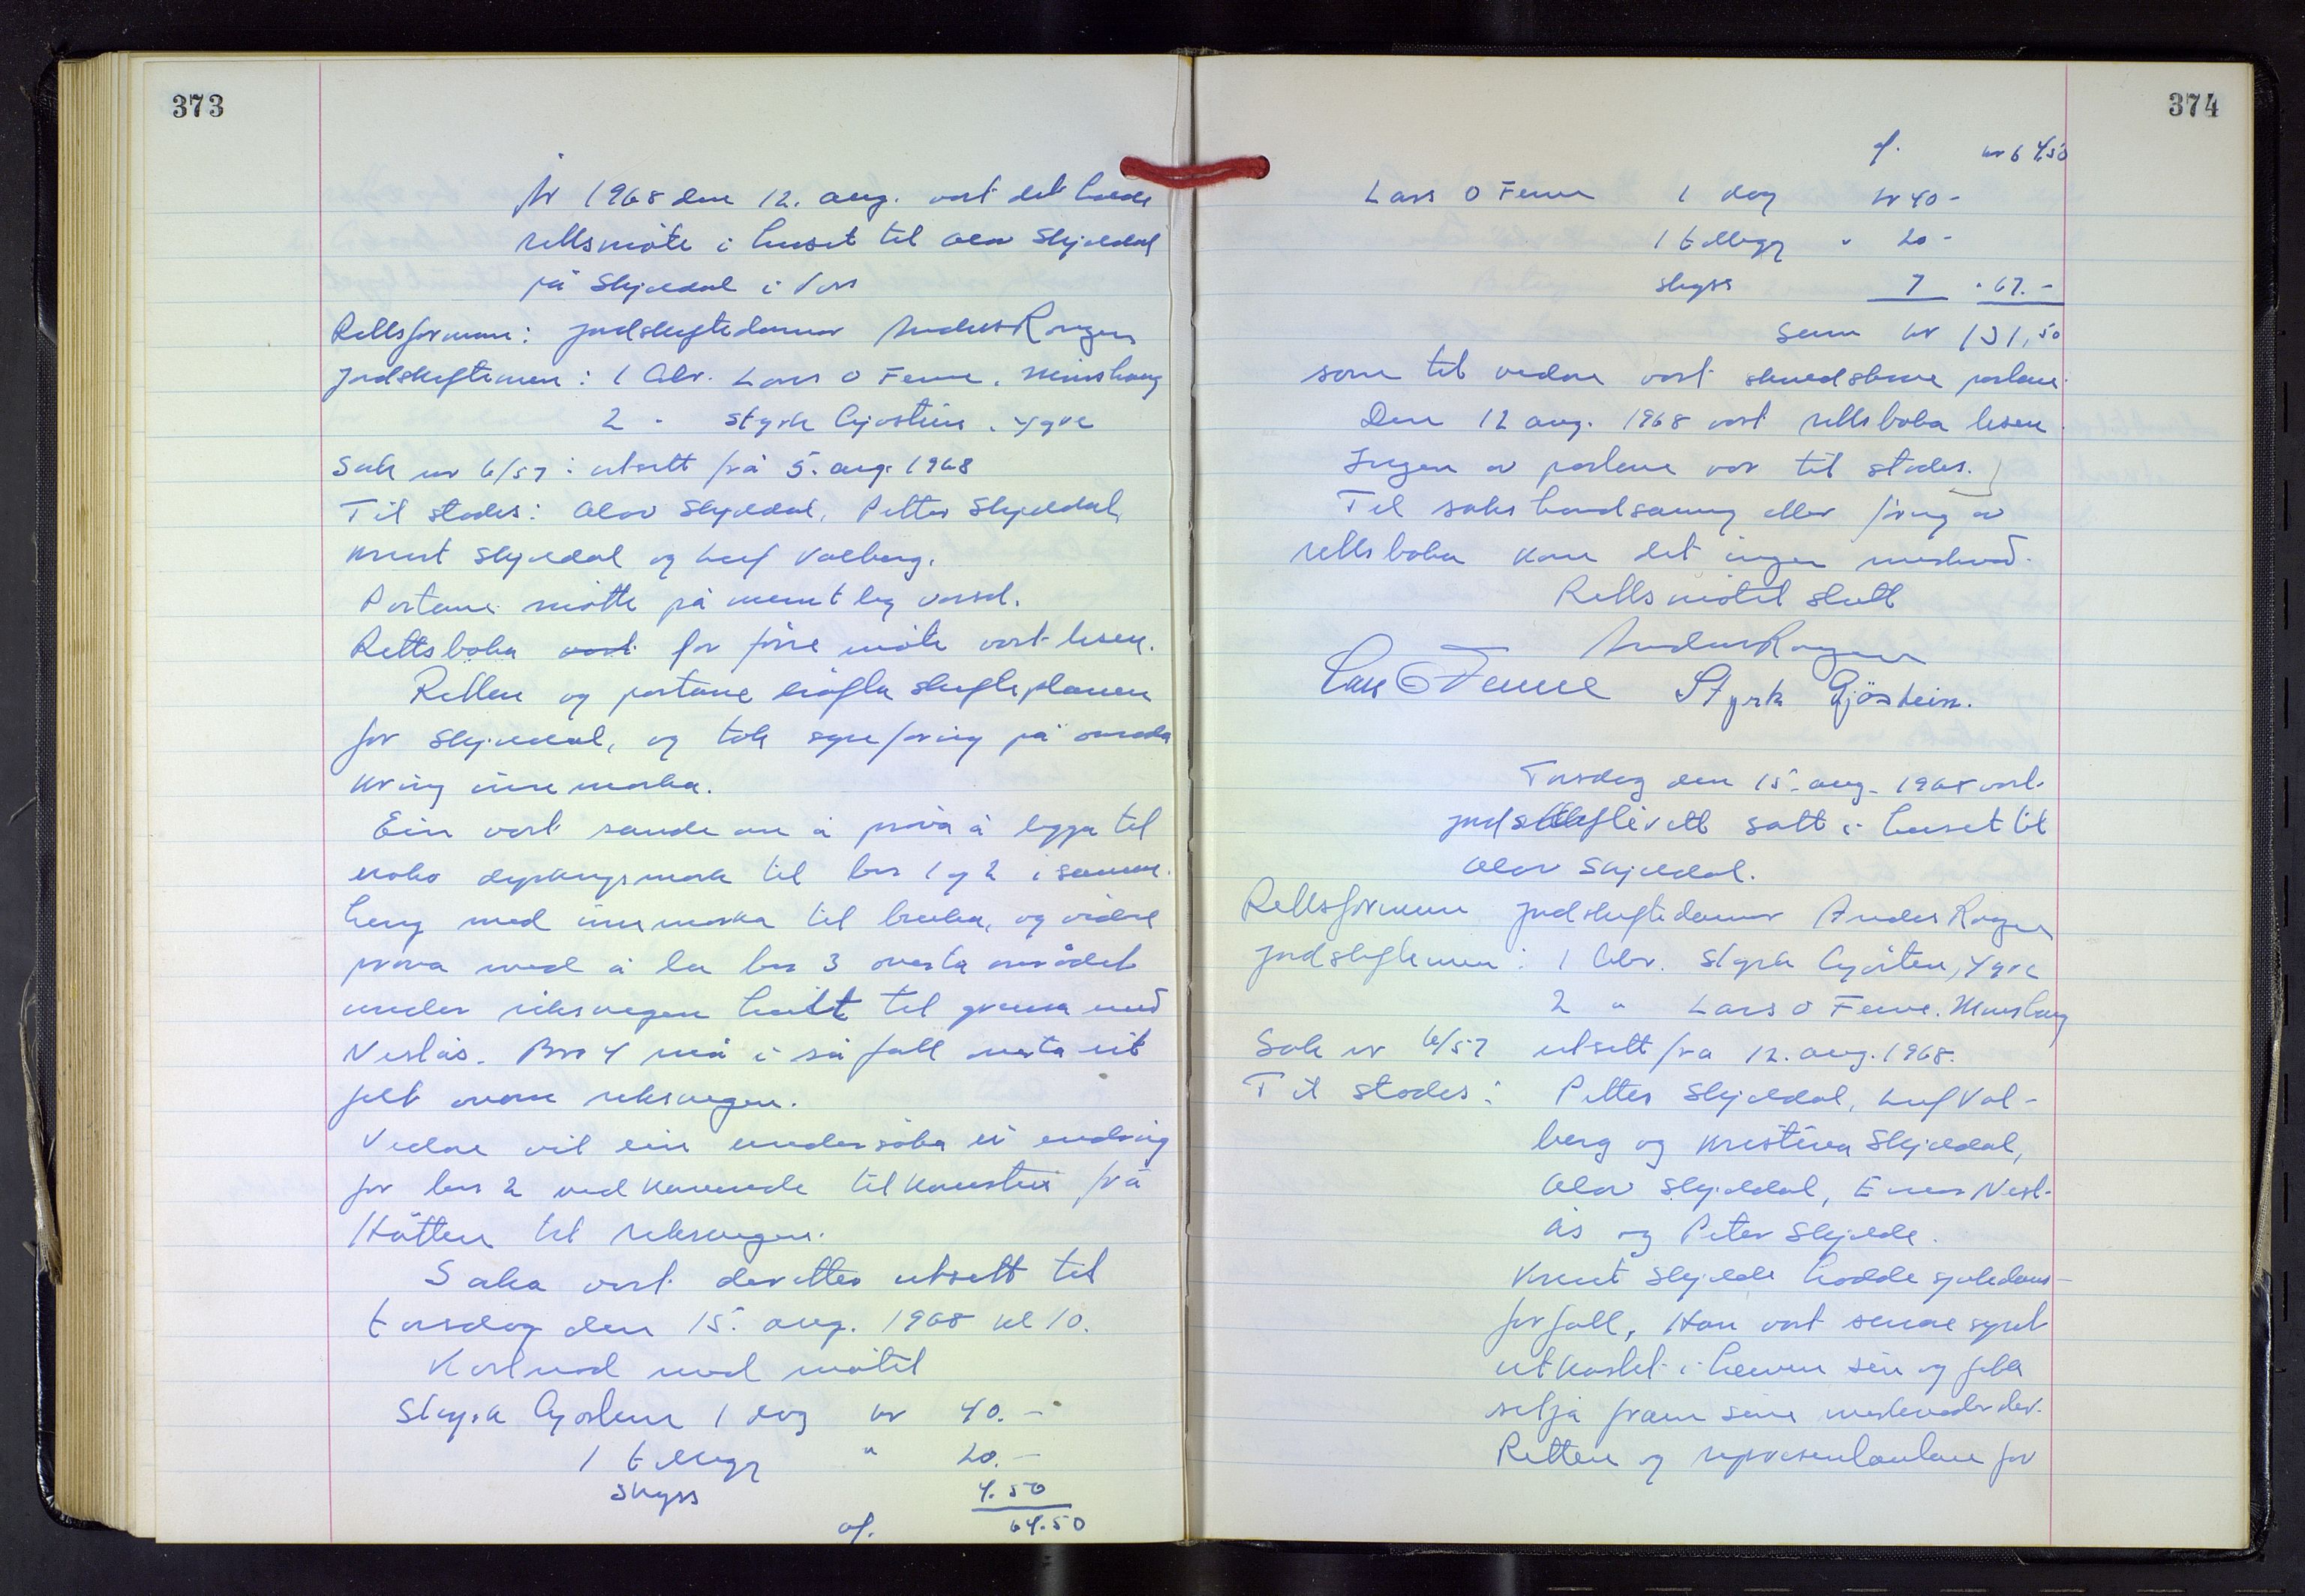 373
År 1968 den 12. aug. vart det halde
rettsmöte i huset til Olav Skjeldal
på Skjeldal i Voss
Rettsformann: jordskiftedomar Anders Rongen
Jordskiftemenn: 1 Abr. Lars O Fenne, Mønshaug
2 " Styrk Gjøstein, Ygre
Sak nr 6/57: utsett frå 5. aug. 1968
Til stades: Olav Skjeldal, Petter Skjeldal,
Knut Skjeldal og Leif Valberg.
Partane møtte på munnleg varsel.
Rettsboka vart for førre møte vart lesen.
Retten og partane drøfta skifteplanen
for Skjeldal, og tok synfaring på områda
kring innmarka.
Ein vart samde om å prøva å leggja til
noko dyrkingsmark til bnr 1 og 2 i saman-
heng med innmarka til bruka, og vidare
prøva med å la bnr 3 overta området
under riksvegen heilt til grensa med
Nesläs. Bnr 4 må i så fall overta eit
felt ovom riksvegen.
Vidare vil ein undersöka ei endring
for bnr 2 vedkomande tilkomsten frå
Håtten til riksvegen.
Saka vart deretter utsett til
torsdag den 15. aug. 1968 kl 10.
Kostnad med møtet
Styrk Gjøstein 1 dag kr 40.-
1 tillegg " 20.-
skyss 4.50
of. 64.50
374
of. kr 64,50
Lars O Fenne 1 dag kr 40-
1 tillegg " 20-
skyss 7 " 67.-
Sum kr 131,50
som til vidare vart skuldskrive partane.
Den 12 aug. 1968 vart rettsboka lesen.
Ingen av partane var til stades.
Til sakshandsaming eller føring av
rettsboka kom det ingen merknad.
Rettsmötet slutt
Anders Rongen
Lars O Fenne Styrk Gjöstein.
Torsdag den 15. aug. 1968 vart
jordskifterett satt i huset til
Olav Skjeldal.
Rettsformann jordskiftedomar Anders Rongen
Jordskiftemenn: 1 Abr. Styrk Gjøstein, Ygre
2 " Lars O Fenne, Mønshaug
Sak nr 6/57 utsett frå 12. aug. 1968.
Til stades: Petter Skjeldal, Leif Val-
berg og Kristina Skjeldal,
Olav Skjeldal, Nesl-
ås og Peter Skjelde.
Knut Skjelde hadde sjukdoms-
forfall, Han vart synt
utkastet i heimen sin og fekk
setja fram sine merknader der.
Retten og representantane for